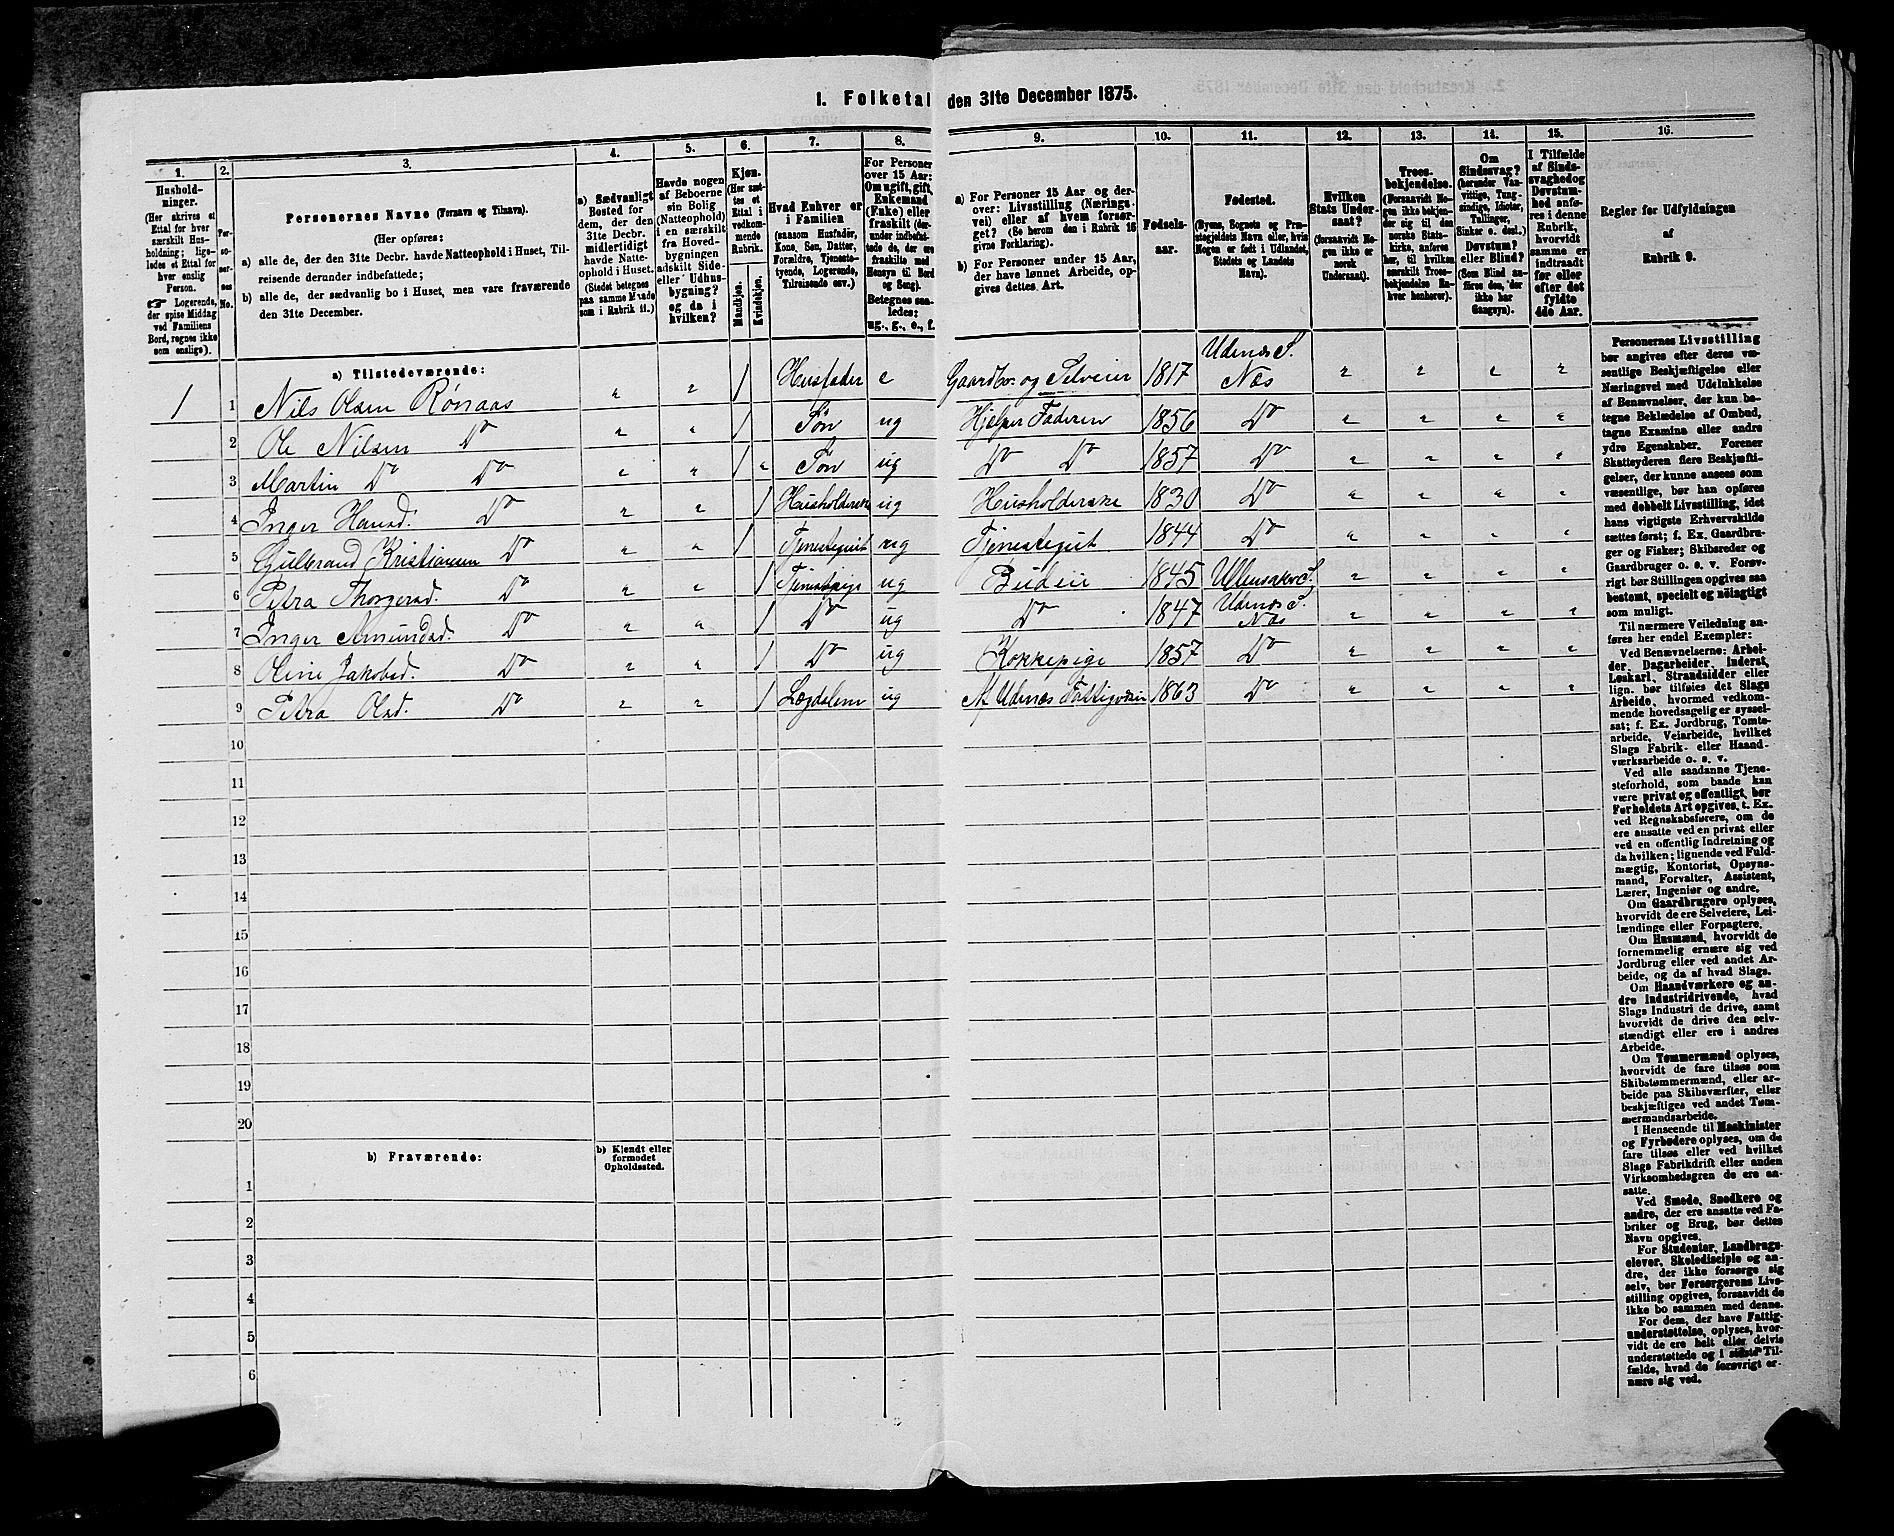 I. Folketal den 31te December 1875.
1. 2. 3. 4. 5. 6. 7. 8. 9. 10. 11. 12. 13. 14. 15. 16.
Husholdninger.
(Her skrives et Ettal for hver særskilt Husholdning; ligeledes et Ettal for hver enslig Person.
☞ Logerende, der spise Middag ved Familiens Bord, regnes ikke som enslige).
Personernes No.
Personernes Navne (Fornavn og Tilnavn).
(Her opføres:
a) alle de, der den 31te Decbr. havde Natteophold i Huset, Tilreisende derunder indbefattede;
b) alle de, der sædvanlig bo i Huset, men vare fraværende den 31te December.
a) Sædvanligt Bosted for dem, der den 31te Decbr. midlertidigt havde Natteophold i Huset. (Stedet betegnes paa samme Maade som i Rubrik 11.)
Havde nogen af Beboerne sin Bolig (Natteophold) i en særskilt fra Hovedbygningen adskilt Side- eller Udhusbygning? og da i hvilken?
Kjøn. (Her sættes et Ettal i vedkommende Rubrik.
Mandkjøn.
Kvindekjøn.
Hvad Enhver er i Familien
(saasom Husfader, Kone, Søn, Datter, Forældre, Tjenestetyende, Logerende, Tilreisende osv.)
For Personer over 15 Aar: Om ugift, gift, Enkemand (Enke) eller fraskilt (derunder indbefattede de, der ere fraskilte med Hensyn til Bord og Seng).
Betegnes saaledes: ug., g., e., f.
a) For Personer 15 Aar og derover: Livsstilling (Næringsvei) eller af hvem forsørget? (Se herom den i Rubrik 16 givne Forklaring).
b) For Personer under 15 Aar, der have lønnet Arbeide, opgives dettes Art.
Fødselsaar.
Fødested.
(Byens, Sognets og Præstegjeldets Navn eller, hvis Nogen er født i Udlandet, Stedets og Landets Navn).
Hvilken Stats Undersaat?
(forsaavidt Nogen ikke er norsk Undersaat).
Troesbekjendelse.
(Forsaavidt Nogen ikke bekjender sig til den norske Statskirke, anføres her, til hvilken særskilt Troesbekjendelse Enhver henhører).
Om Sindssvag? (herunder Vanvittige, Tungsindige, Idioter, Tullinger, Sinker o. desl.). Døvstum? eller Blind? (Som Blind anføres den, der ikke har Gangsyn).
I Tilfælde af Sindssvaghed og Døvstumhed anføres i denne Rubrik, hvorvidt samme er indtraadt før eller efter det fyldte 4de Aar.
Regler for Udfyldningen af Rubrik 9.
a) Tilstedeværende:
1 1 Nils Olsen Rønaas " " 1 Husfader e Gaardbr. og Selveier 1817 Udenæs S. Næs " " " "
2 Ole Nilsen Do " " 1 Søn ug Hjelper Faderen 1856 Do " " " "
3 Martin Do Do " " 1 " Søn ug Do Do 1857 Do " " " "
4 Inger Hansd. Do " " 1 Husholderske ug Husholderske 1830 Do " " " "
5 Gulbrand Kristiansen Do " " 1 Tjenestegut ug Tjenestegut 1844 Do " " " "
6 Petra Thorgersd. Do " " 1 Tjenestepige ug Budeie 1845 Ullensaker S. " " " "
7 Inger Amundsd. Do " " 1 Do ug Do 1847 Udenæs S. Næs " " " "
8 Oline Jakobsd. Do " " 1 Do ug Kokkepige 1857 Do " " " "
9 Petra Olsd. Do " " 1 Lægdslem ug Af Udenæs Fattigvæsen 1863 Do " " " "
10
11
12
13
14
15
16
17
18
19
20
b) Fraværende:
b) Kjendt eller formodet Opholdssted.
1
2
3
4
5
6
Personernes Livsstilling
bør angives efter deres væsentlige Beskjæftigelse eller
Næringsvei med Udelukkelse
af Benævnelser, der kun betegne Beklædelse af Ombud,
tagne Examina eller andre
ydre Egenskaber. Forener
Skatteyderen flere Beskjæftigelser, der kunne ansees som
væsentlige, bør han opføres
med dobbelt Livsstilling, idet
hans vigtigste Erhvervskilde
sættes først; f. Ex. Gaardbruger og Fisker; Skibsreder og
Gaardbruger o. s. v. Forøvrigt bør Stillingen opgives saa
bestemt, specielt og nøiagtigt
som muligt.
Til nærmere Veiledning anføres her endel Exempler:
Ved Benævnelserne: Arbeider, Dagarbeider, Inderst,
Løskarl, Strandsidder eller
lign. bør tilføies det Slags
Arbeide, hvormed vedkommende hovedsagelig er sysselsat; f. Ex. Jordbrug, Tomtearbeide, Veiarbeide, hvilket
Slags Fabrik- eller Haandværksarbeide o. s. v.
Ved alle saadanne Tjenesteforhold, som baade kan
være privat og offentligt, bør
Forholdets Art opgives, t. Ex.
ved Regnskabsførere, om de
ere ansatte ved en privat eller
ved en offentlig Indretning og
da hvilken; lignende ved Fuldmægtig, Kontorist, Opsynsmand, Forvalter, Assistent,
Lærer, Ingeniør og andre.
Om Gaardbrugere oplyses,
hvorvidt de ere Selveiere, Leilændinge eller Forpagtere.
Om Husmænd, hvorvidt de
fornemmelig ernære sig ved
Jordbrug eller ved andet Arbeide, og da af hvad Slags.
Om Haandværkere og andre Industridrivende, hvad
Slags Industri de drive, samt
hvorvidt de drive den selvstændigt eller ere i andres
Arbeide.
Om Tømmermænd oplyses,
hvorvidt de fare tilsøs som
Skibstømmermænd, eller arbeide paa Skibsværfter, eller
beskjæftiges ved andet Tømmermandsarbeide.
I Henseende til Maskinister
og Fyrbødere oplyses, om de
fare tilsøs eller ved hvilket
Slags Fabrikdrift eller anden
Virksomhedsgren de ere ansatte.
Ved Smede, Snedkere og
andre, der ere ansatte ved Fabriker og Brug, bør dettes
Navn opgives.
For Studenter, Landbrugselever, Skoledisciple og andre, der ikke forsørge sig
selv, bør Forsørgerens Livsstilling opgives, forsaavidt de
ikke bo sammen med denne.
For dem, der have Fattigunderstøttelse, oplyses, hvorvidt de ere helt eller delvis
understøttede og i sidste Tilfælde, hvad de forøvrigt ernære sig ved.